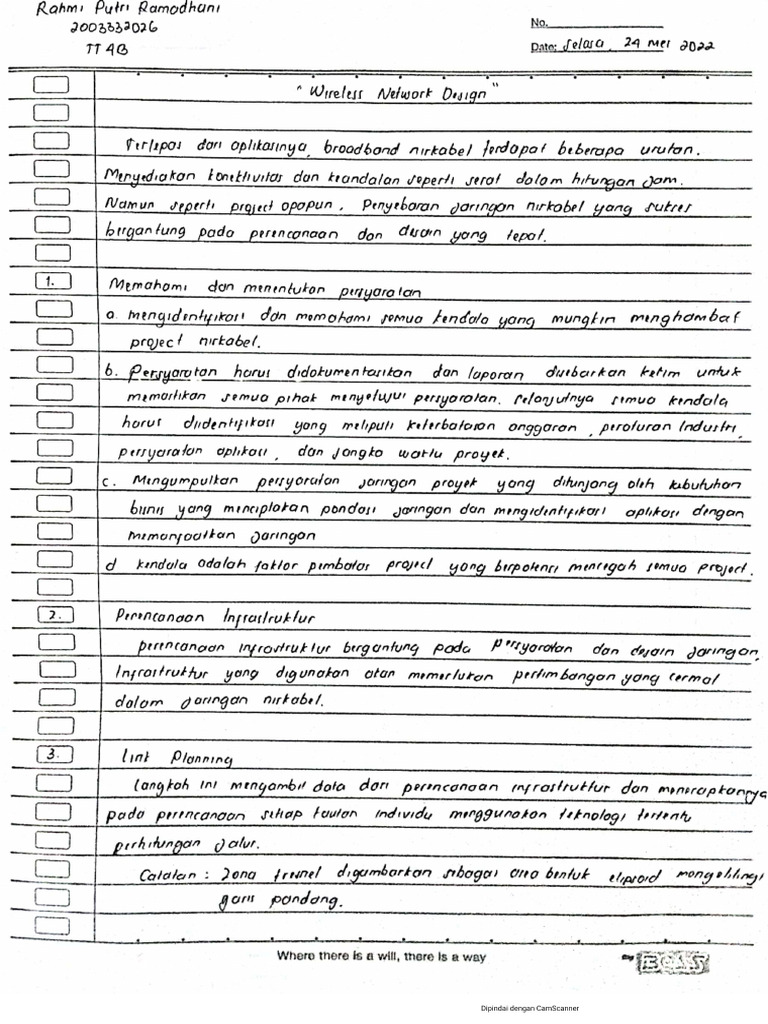 Rahmi Putri Ramadhani
2003332026
TT 4B
No.
Date: Selasa, 24 Mei 2022
"Wireless Network Design"
Terlepas dari aplikasinya, broadband nirkabel terdapat beberapa urutan.
Menyediakan konektivitas dan keandalan seperti serat dalam hitungan jam.
Namun seperti project apapun. Penyebaran jaringan nirkabel yang sukses
bergantung pada perencanaan dan desain yang tepat.
1. Memahami dan menentukan persyaratan
a. mengidentifikasi dan memahami semua kendala yang mungkin menghambat
project nirkabel.
b. Persyaratan harus didokumentasikan dan laporan disebarkan ketim untuk
memastikan semua pihak menyetujui persyaratan. Selanjutnya semua kendala
harus diidentifikasi yang meliputi keterbatasan anggaran, peraturan Industri,
persyaratan aplikasi, dan jangka waktu proyek.
c. Mengumpulkan persyaratan jaringan proyek yang ditunjang oleh kebutuhan
bisnis yang menciptakan pondasi jaringan dan mengidentifikasi aplikasi dengan
memanfaatkan jaringan
d kendala adalah faktor pembatas project yang berpotensi mencegah semua project.
2. Perencanaan Infrastruktur
perencanaan infrastruktur bergantung pada persyaratan dan desain jaringan,
Infrastruktur yang digunakan akan memerlukan pertimbangan yang cermat
dalam jaringan nirkabel.
3. Link Planning
Langkah ini mengambil data dari perencanaan infrastruktur dan menerapkannya
pada perencanaan setiap tautan individu menggunakan teknologi tertentu
perhitungan jalur.
Catatan : Zona fresnel digambarkan sebagai area bentuk elipsoid mengelilingi
garis pandang.
Where there is a will, there is a way
by BOSS
Dipindai dengan CamScanner